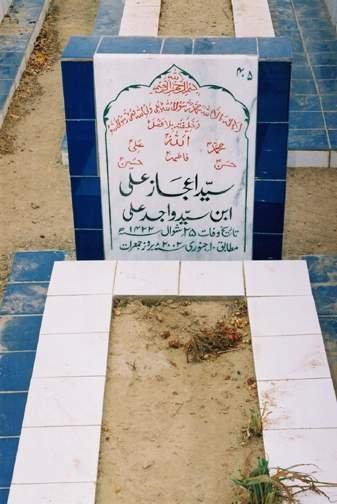 م ۵
بسم اللہ الرحمن الرحیم
لا الہ الا اللہ محمد رسول اللہ علی ولی اللہ وصی رسول اللہ
وخلیفتہ بلا فصل
اللہ
محمد علی
فاطمہ
حسن حسین
سید اعجاز علی
ابن سید واجد علی
تاریخ وفات ۲۵ شوال ۱۴۲۲ھ
مطابق ۱۰ جنوری ۲۰۰۲ء بروز جمعرات